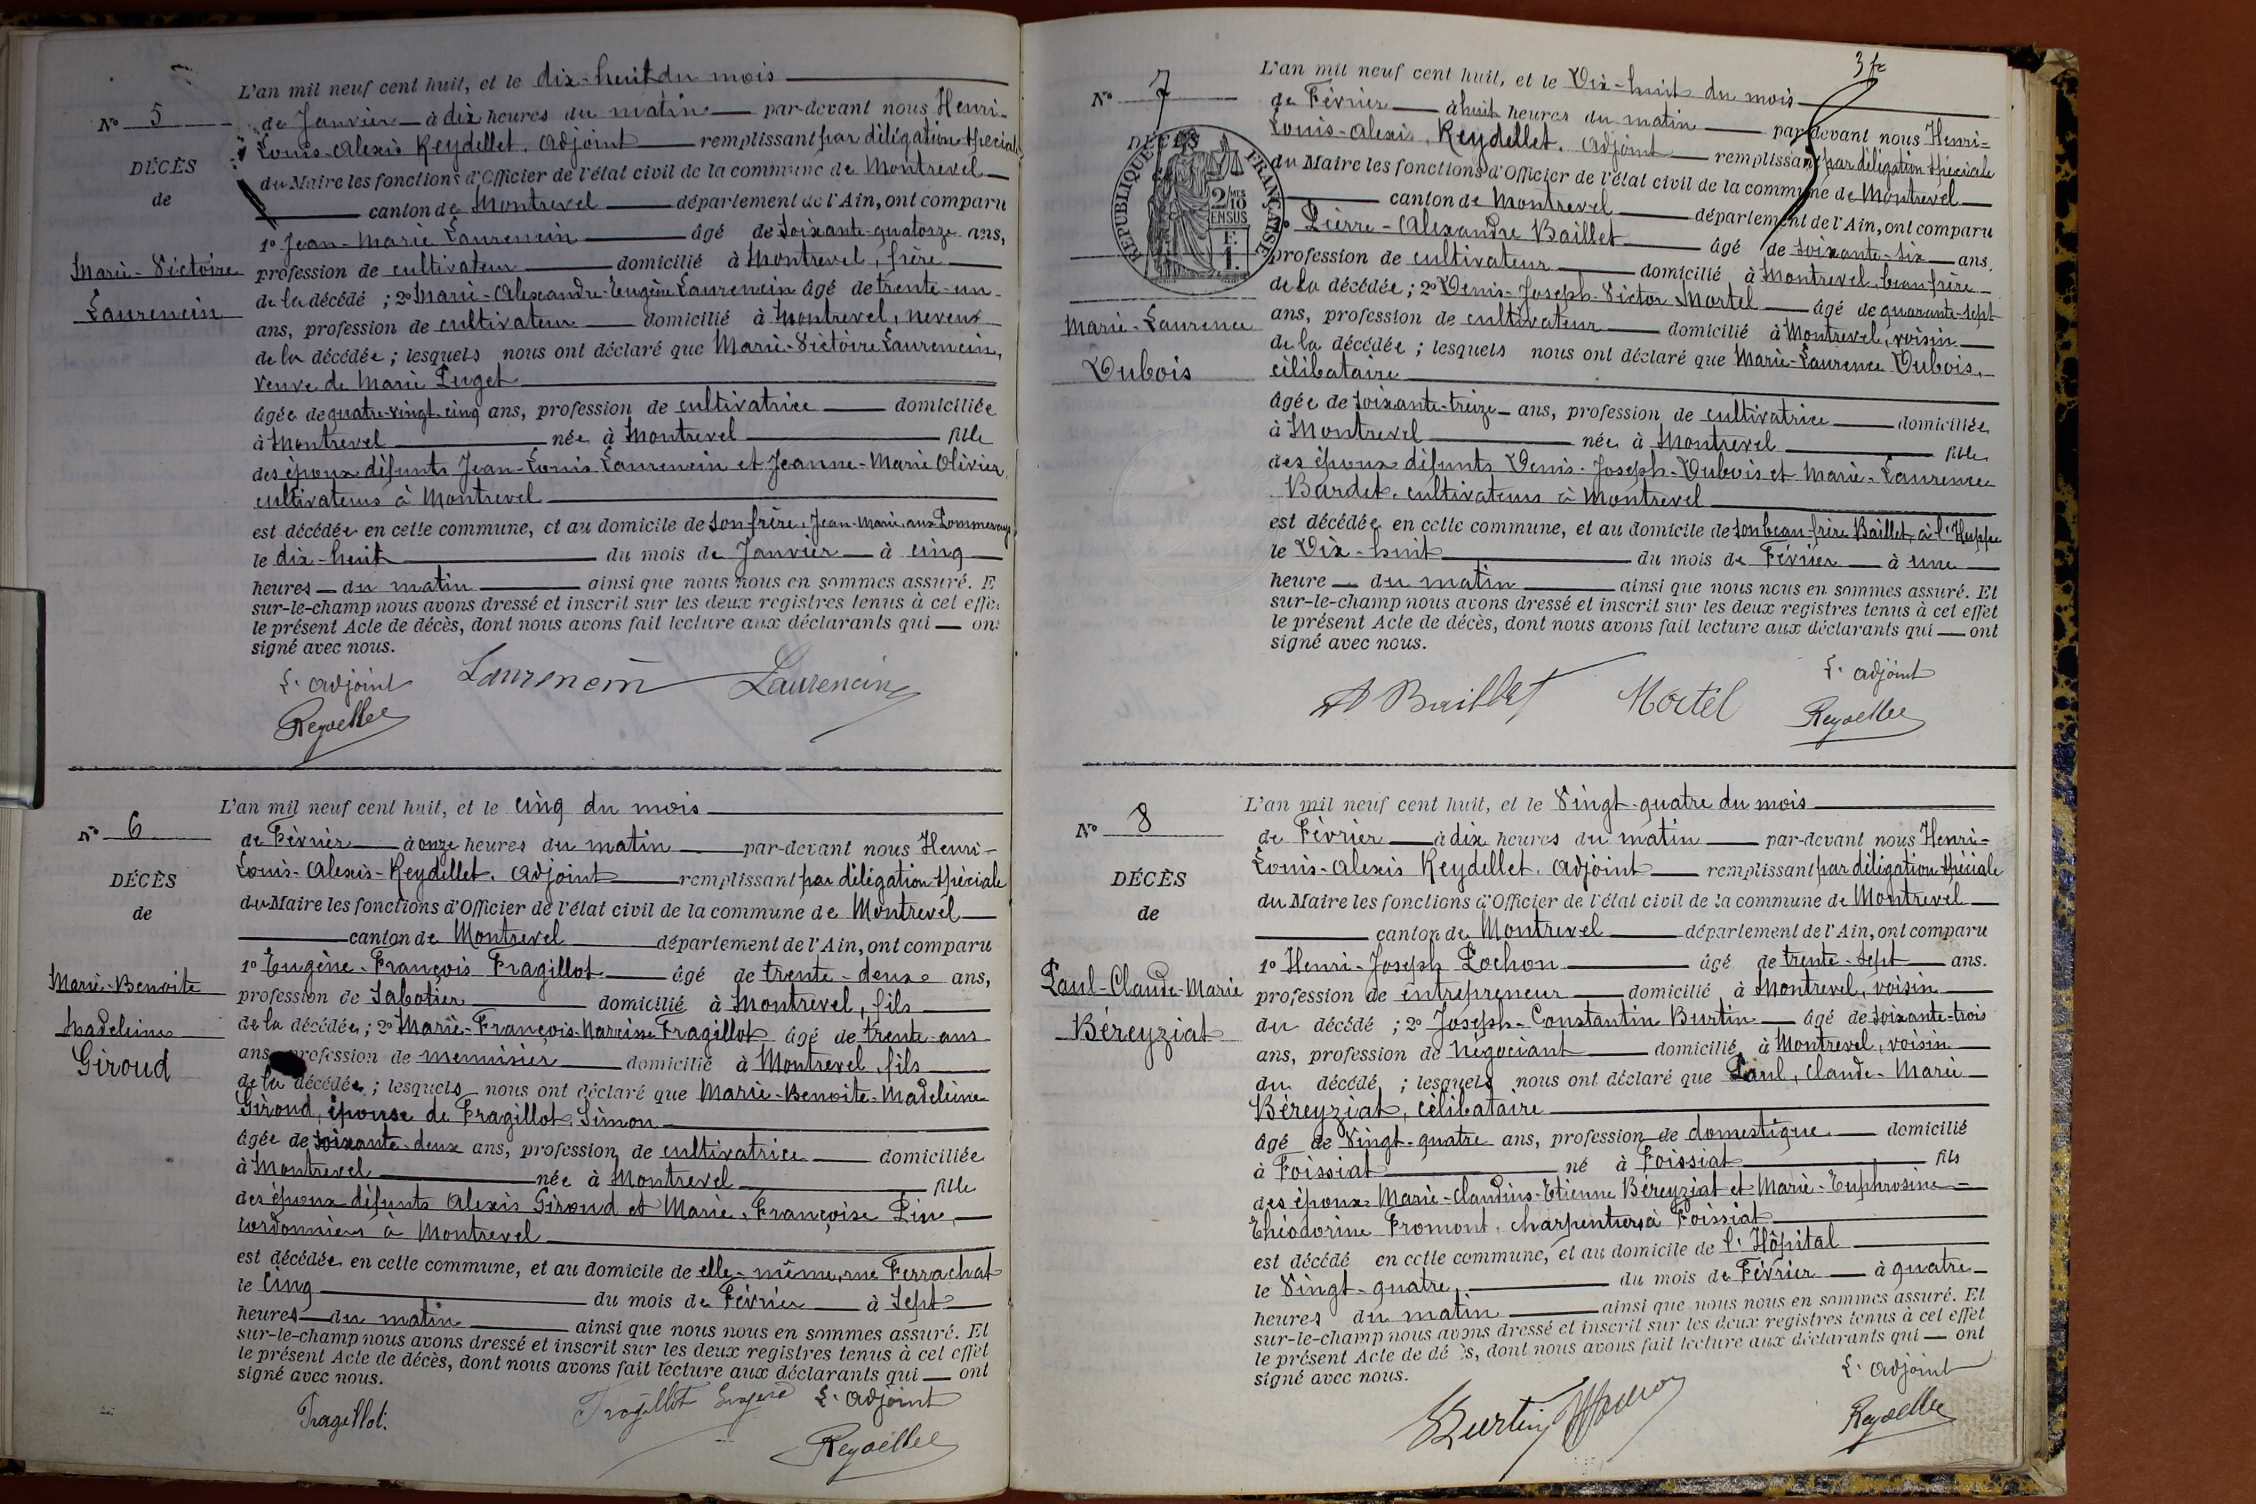 N° 5
DÉCÈS
de
Marie-Victoire
Laurencin
L'an mil neuf cent huit, et le dix-huit du mois
de Janvier à dix heures du matin par-devant nous Henri-
Louis-Alexis Reydellet, Adjoint remplissant par délégation spéciale
du Maire les fonctions d'Officier de l'état civil de la commune de Montrevel
canton de Montrevel département de l'Ain, ont comparu
1° Jean-Marie Laurencin âgé de soixante-quatorze ans,
profession de cultivateur domicilié à Montrevel, frère
de la décédé ; 2° Marie-Alexandre-Eugène Laurencin âgé de trente-un
ans, profession de cultivateur domicilié à Montrevel, neveu
de la décédée ; lesquels nous ont déclaré que Marie-Victoire Laurencin,
veuve de Marie Puget
âgée de quatre-vingt-cinq ans, profession de cultivatrice domiciliée
à Montrevel née à Montrevel fille
des époux défunts Jean-Louis Laurencin et Jeanne-Marie Olivier,
cultivateurs à Montrevel
est décédée en cette commune, et au domicile de son frère, Jean-Marie, aux
le dix-huit du mois de Janvier à cinq
heures du matin ainsi que nous nous en sommes assuré. E
sur-le-champ nous avons dressé et inscrit sur les deux registres tenus à cet effe
le présent Acte de décès, dont nous avons fait lecture aux déclarants qui on
signé avec nous.
L'adjoint Laurencin Laurencin
Reydellet
N° 6
DÉCÈS
de
Marie-Benoite
Madeleine
Giroud
L'an mil neuf cent huit, et le cinq du mois
de Février à onze heures du matin par-devant nous Henri-
Louis-Alexis-Reydellet, Adjoint remplissant par délégation spéciale
du Maire les fonctions d'Officier de l'état civil de la commune de Montrevel
canton de Montrevel département de l'Ain, ont comparu
1° Eugène-François Fragillot âgé de trente-deux ans,
profession de Sabotier domicilié à Montrevel, fils
de la décédée ; 2° Marie-François-Narcisse Fragillot âgé de trente ans
ans profession de menuisier domicilié à Montrevel, fils
de la décédée ; lesquels nous ont déclaré que Marie-Benoite-Madeleine
Giroud, épouse de Fragillot Simon
âgée de soixante-deux ans, profession de cultivatrice domiciliée
à Montrevel née à Montrevel fille
des époux défunts Alexis Giroud et Marie-Françoise Pin,
cordonniers à Montrevel
est décédée en cette commune, et au domicile de elle-même, rue Ferrachat
le Cinq du mois de Février à sept
heures du matin ainsi que nous nous en sommes assuré. Et
sur-le-champ nous avons dressé et inscrit sur les deux registres tenus à cet effet
le présent Acte de décès, dont nous avons fait lecture aux déclarants qui ont
signé avec nous.
Fragillot. Fragillot Eugène L'adjoint
Reydellet
3 fe
N° 7
DÉCÈS
RÉPUBLIQUE FRANÇAISE
2/10 EN SUS
F. 1.
Marie-Laurence
Dubois
L'an mil neuf cent huit, et le Dix-huit du mois
de Février à huit heures du matin par-devant nous Henri-
Louis-Alexis, Reydellet, Adjoint remplissant par délégation spéciale
du Maire les fonctions d'Officier de l'état civil de la commune de Montrevel
canton de Montrevel département de l'Ain, ont comparu
1° Pierre-Alexandre Baillet âgé de soixante-six ans.
profession de cultivateur domicilié à Montrevel, beau-frère
de la décédée ; 2° Denis-Joseph-Victor Martel âgé de quarante-sept
ans, profession de cultivateur domicilié à Montrevel, voisin
de la décédée ; lesquels nous ont déclaré que Marie-Laurence Dubois,
célibataire
âgée de soixante-treize ans, profession de cultivatrice domiciliée
à Montrevel née à Montrevel fille
des époux défunts Denis-Joseph-Dubois et Marie-Laurence
Bardet, cultivateurs à Montrevel
est décédée en cette commune, et au domicile de son beau-frère Baillet, à l'Huppe
le Dix-huit du mois de Février à une
heure du matin ainsi que nous nous en sommes assuré. Et
sur-le-champ nous avons dressé et inscrit sur les deux registres tenus à cet effet
le présent Acte de décès, dont nous avons fait lecture aux déclarants qui ont
signé avec nous.
A Baillet Martel L'adjoint
Reydellet
N° 8
DÉCÈS
de
Paul-Claude-Marie
Béreyziat
L'an mil neuf cent huit, et le Vingt-quatre du mois
de Février à dix heures du matin par-devant nous Henri-
Louis-Alexis Reydellet, Adjoint remplissant par délégation spéciale
du Maire les fonctions d'Officier de l'état civil de la commune de Montrevel
canton de Montrevel département de l'Ain, ont comparu
1° Henri-Joseph Pochon âgé de trente-sept ans.
profession de entrepreneur domicilié à Montrevel, voisin
du décédé ; 2° Joseph-Constantin Burtin âgé de soixante-trois
ans, profession de négociant domicilié à Montrevel, voisin
du décédé ; lesquels nous ont déclaré que Paul, Claude-Marie
Béreyziat, célibataire
âgé de Vingt-quatre ans, profession de domestique domicilié
à Foissiat né à Foissiat fils
des époux Marie-Claudius-Etienne Béreyziat et Marie-Euphrosine-
Théodorine Fromont, charpentiers à Foissiat
est décédé en cette commune, et au domicile de l'Hôpital
le Vingt-quatre du mois de Février à quatre
heures du matin ainsi que nous nous en sommes assuré. Et
sur-le-champ nous avons dressé et inscrit sur les deux registres tenus à cet effet
le présent Acte de dé s, dont nous avons fait lecture aux déclarants qui ont
signé avec nous.
Burtin L'adjoint
Reydellet